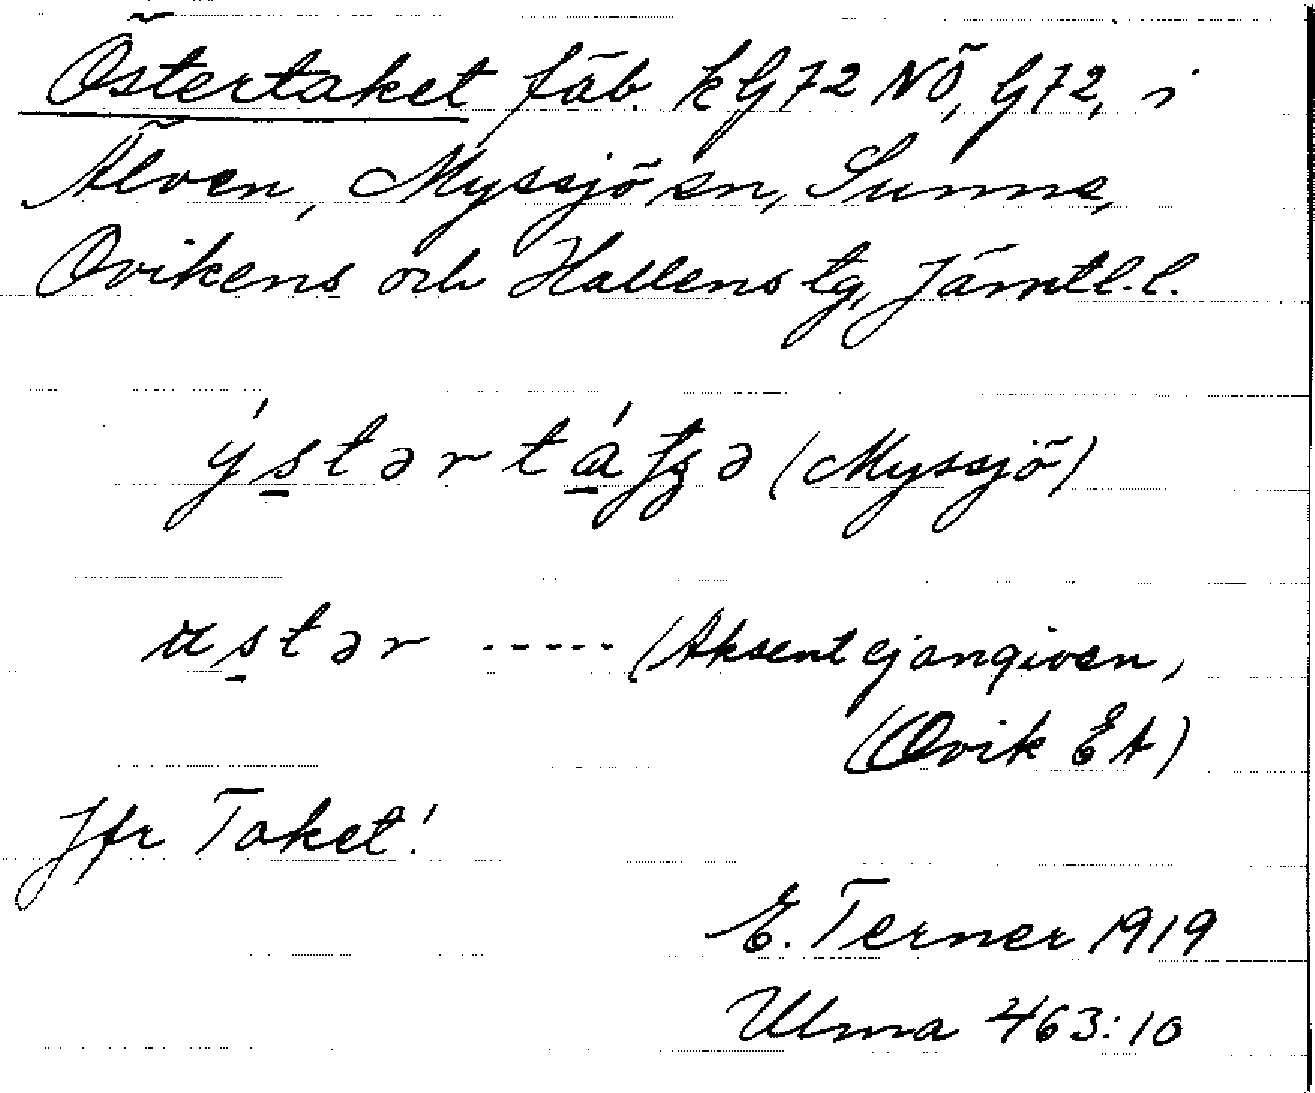 Östertaket fäb. k G72 NÖ, G72, i
Älven, Myssjö sn, Sunne,
Ovikens och Hallens tg, Jämtl.l.
ýstərtáʃʒə (Myssjö)
ustər ----- (Aksent ej angiven,
(Ovik EA)
Jfr Taket!
E. Terner 1919
Ulma 463:10